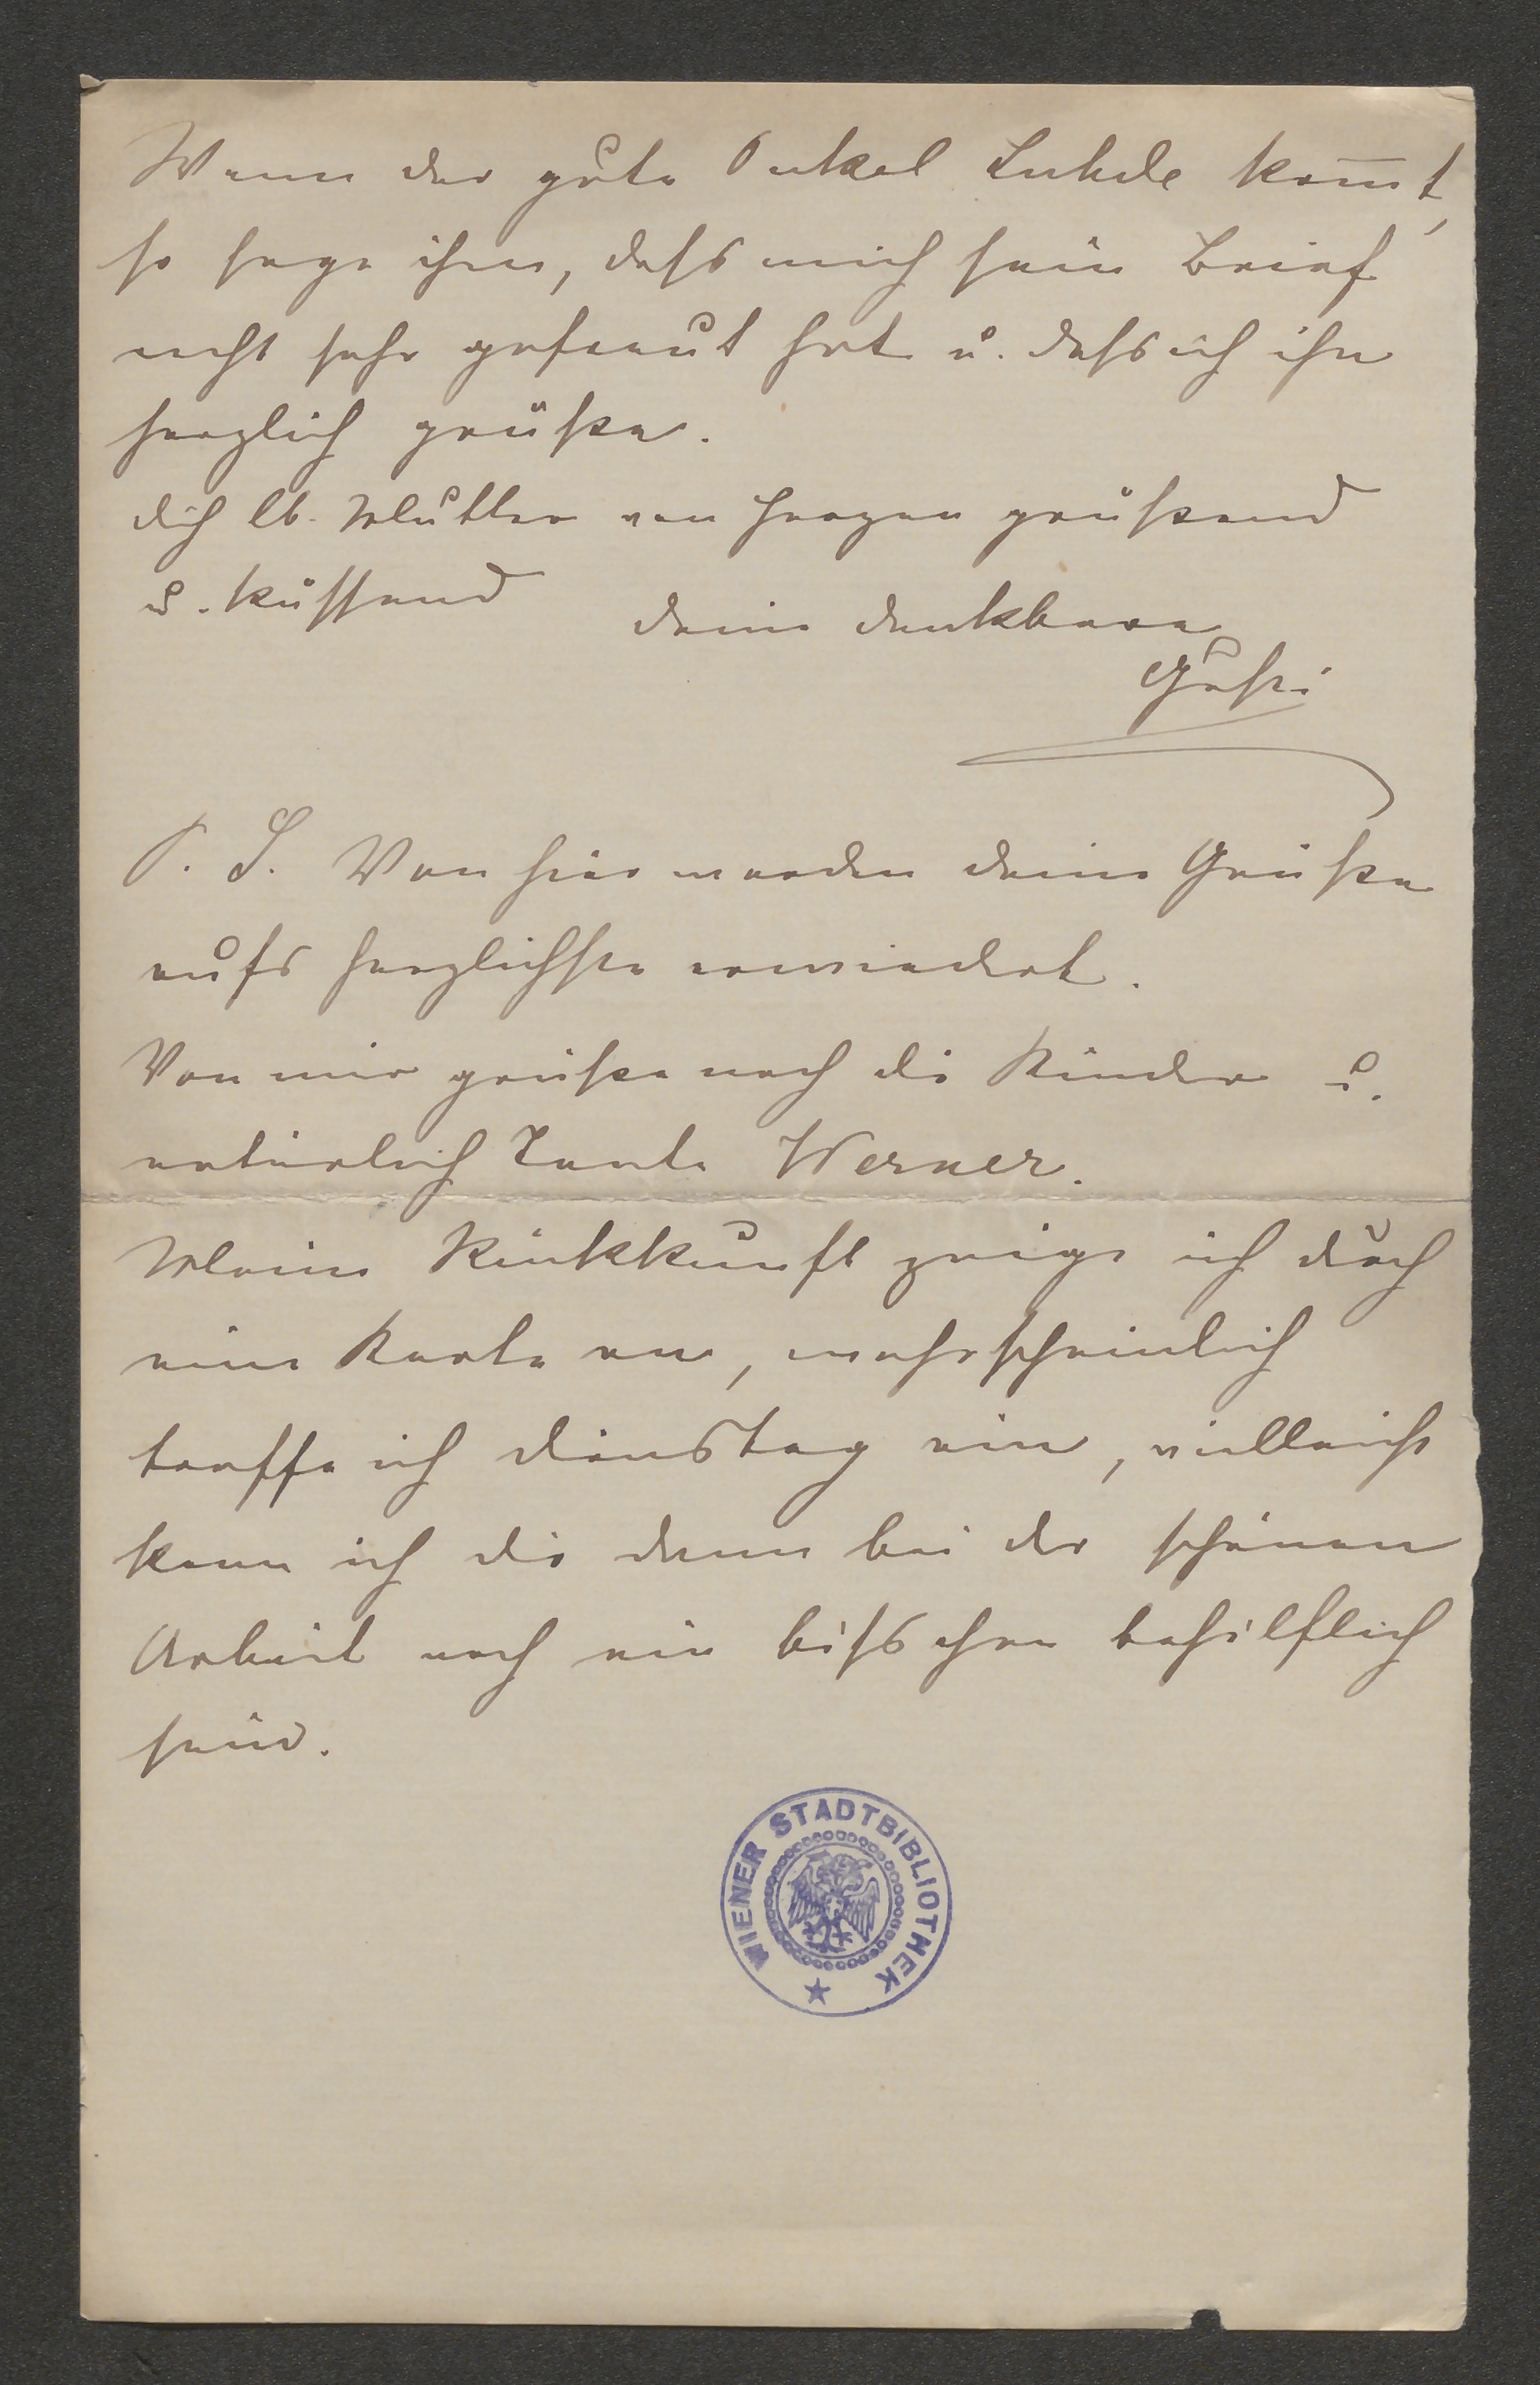 Wenn der gute Onkel Luhde kom̅t,
so sage ihm, dass mich sein Brief
recht sehr gefreut hat u. dass ich ihn
herzlich grüße.
Dich lb. Mutter von Herzen grüßend
u. küssend deine dankbare
Gusti
P. S. Von hier werden deine Grüße
aufs herzlichste erwiedert.
Von mir grüße noch die Kinder u.
natürlich Tante Werner.
Meine Rückkunft zeige ich durch
eine Karte an, wahrscheinlich
treffe ich Dienstag ein, vielleicht
kann ich dir dann bei der schönen
Arbeit noch ein bisschen behilflich
sein.
WIENER STADTBIBLIOTHEK